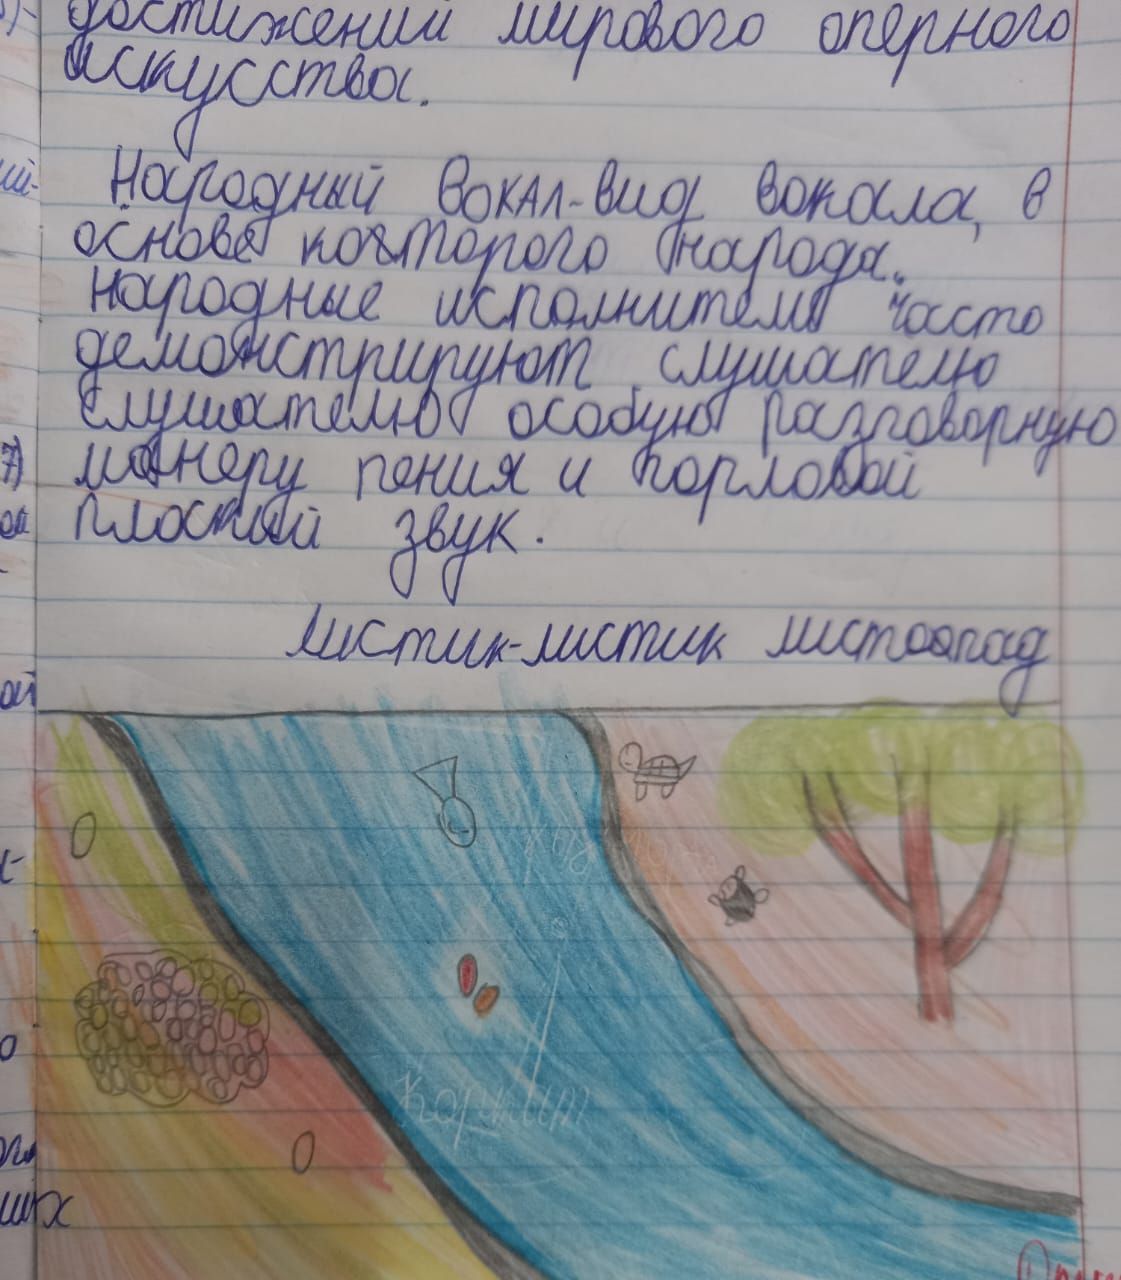 достижений мирового оперного
искусства.
Народный вокал-вид вокала, в
основе которого народа.
народные исполнители часто
демонстрируют слушателю
слушателю особую разговорную
манеру пения и горловой
плоский звук.
Листик-листик листопад